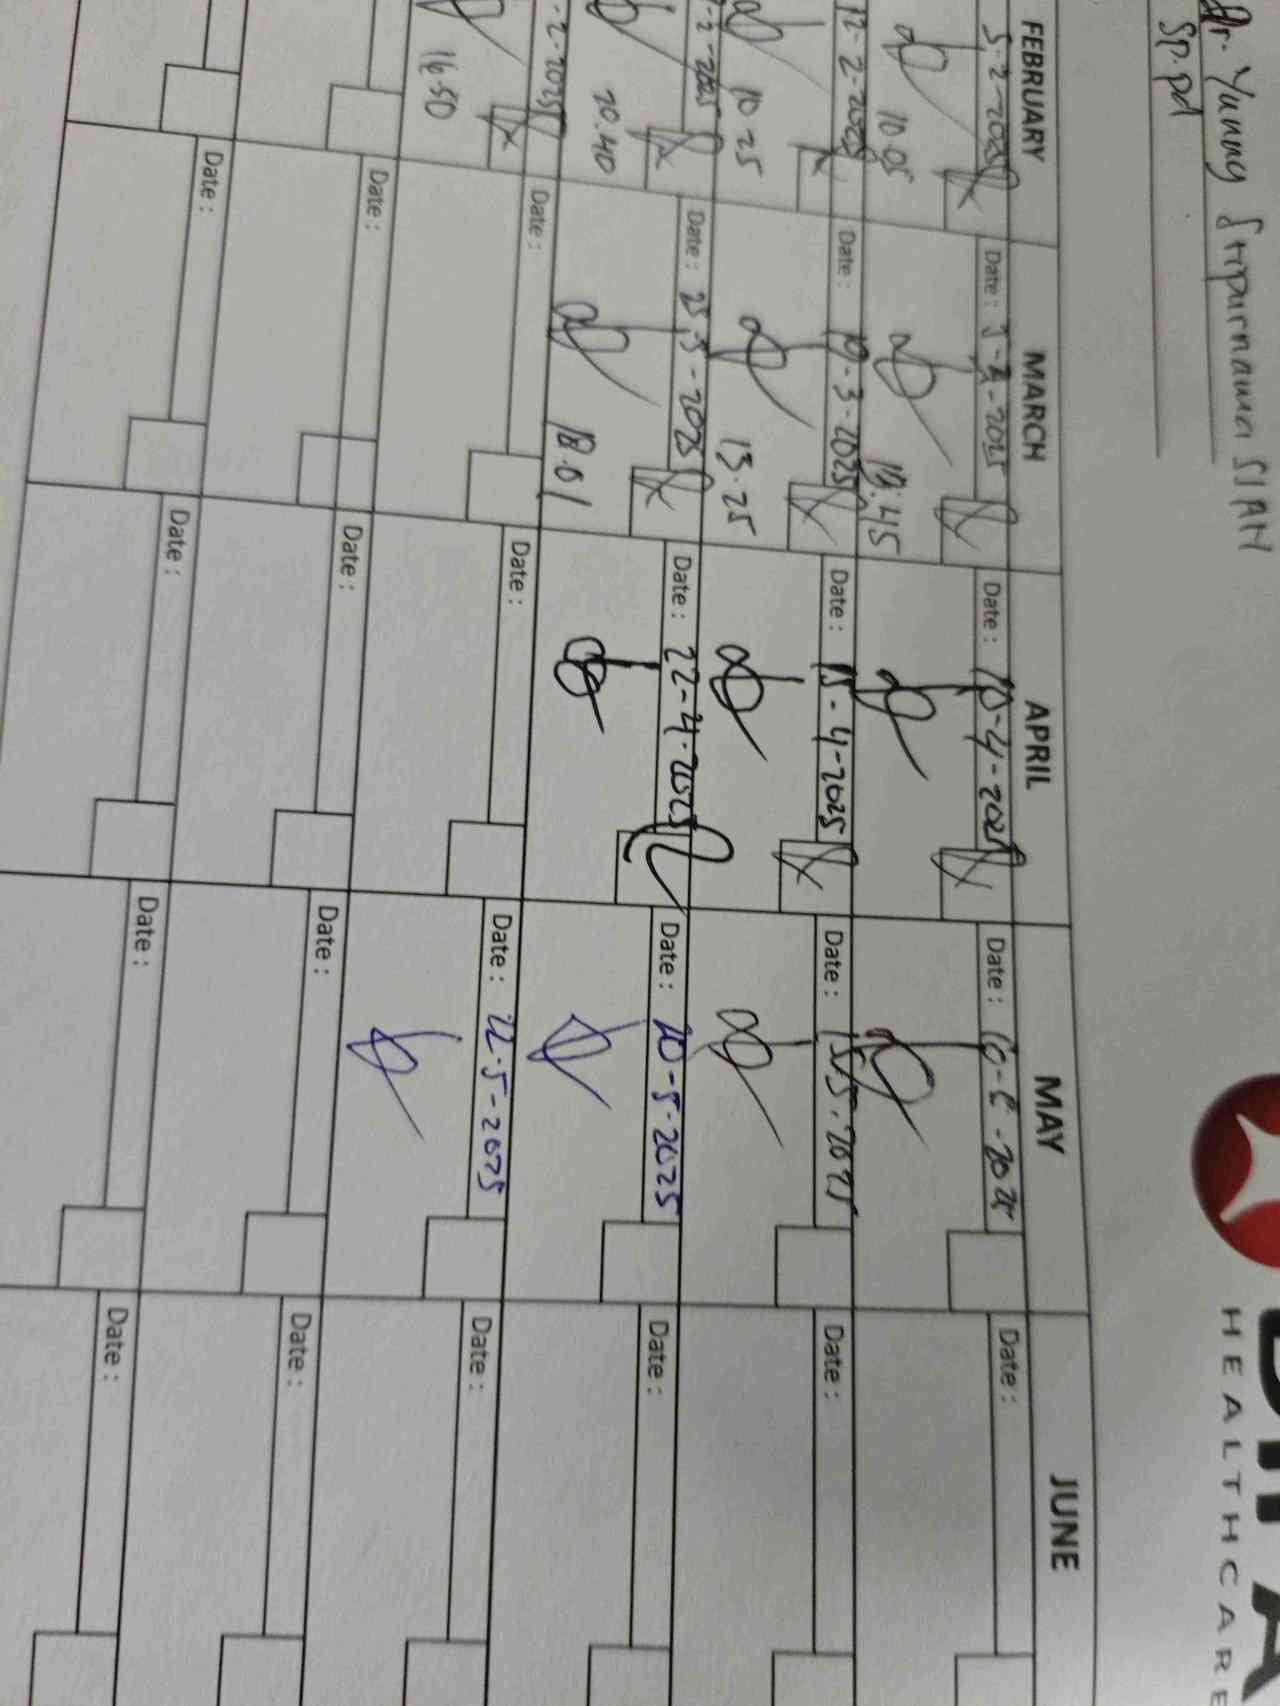 dr. Yunny
Sp.pd
HEALTHCARE
FEBRUARY
MARCH
APRIL
MAY
JUNE
5-2-2025
10.05
Date :
10.45
Date : 10-4-2025
Date :
Date :
12-2-2025
10.25
Date : 19-3-2025
13.25
Date : 15-4-2025
Date : 15.5.2025
Date :
-2-2025
20.40
Date : 25-3-2025
18.01
Date : 22-4-2025
Date : 20-5-2025
Date :
-2-2025
16.50
Date :
Date :
Date : 22.5-2025
Date :
Date :
Date :
Date :
Date :
Date :
Date :
Date :
Date :